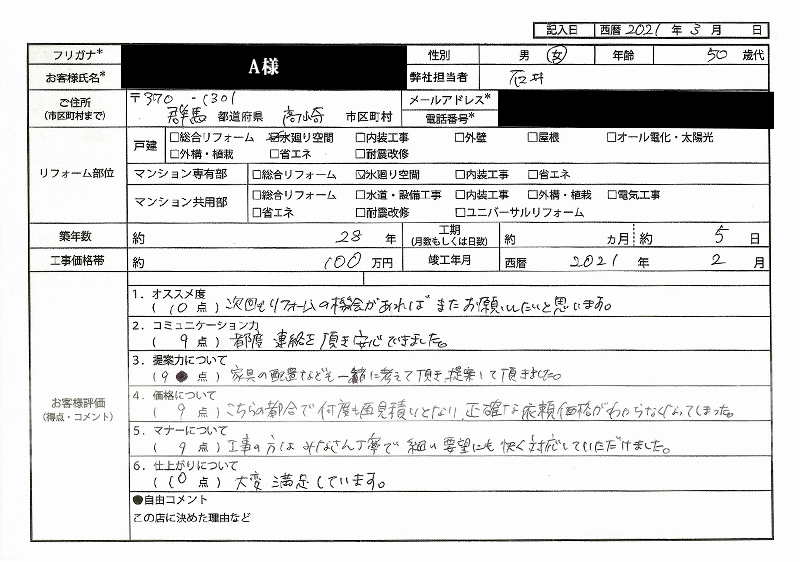 記入日 西暦 2021 年 3 月 日
フリガナ* 性別 男 女 年齢 50 歳代
お客様氏名* A様 弊社担当者 石井
ご住所 〒370-1301 メールアドレス*
(市区町村まで) 群馬 都道府県 高崎 市区町村 電話番号*
リフォーム部位
戸建 □総合リフォーム ☑水廻り空間 □内装工事 □外壁 □屋根 □オール電化・太陽光
□外構・植栽 □省エネ □耐震改修
マンション専有部 □総合リフォーム ☑水廻り空間 □内装工事 □省エネ
マンション共用部 □総合リフォーム □水道・設備工事 □内装工事 □外構・植栽 □電気工事
□省エネ □耐震改修 □ユニバーサルリフォーム
築年数 約 28 年 工期 (月数もしくは日数) 約 ヵ月 約 5 日
工事価格帯 約 100 万円 竣工年月 西暦 2021 年 2 月
お客様評価
(得点・コメント)
1. オススメ度
(10 点) 次回もリフォームの機会があれば またお願いしたいと思います。
2. コミュニケーション力
(9 点) 都度 連絡を頂き安心できました。
3. 提案力について
(9 点) 家具の配置なども一緒に考えて頂き、提案して頂きました。
4. 価格について
(9 点) こちらの都合で何度も再見積いとなり、正確な依頼価格がわからなくなってしまった。
5. マナーについて
(9 点) 工事の方は みなさん丁寧で 細い要望にも 快く対応していただけました。
6. 仕上がりについて
(10 点) 大変 満足しています。
●自由コメント
この店に決めた理由など